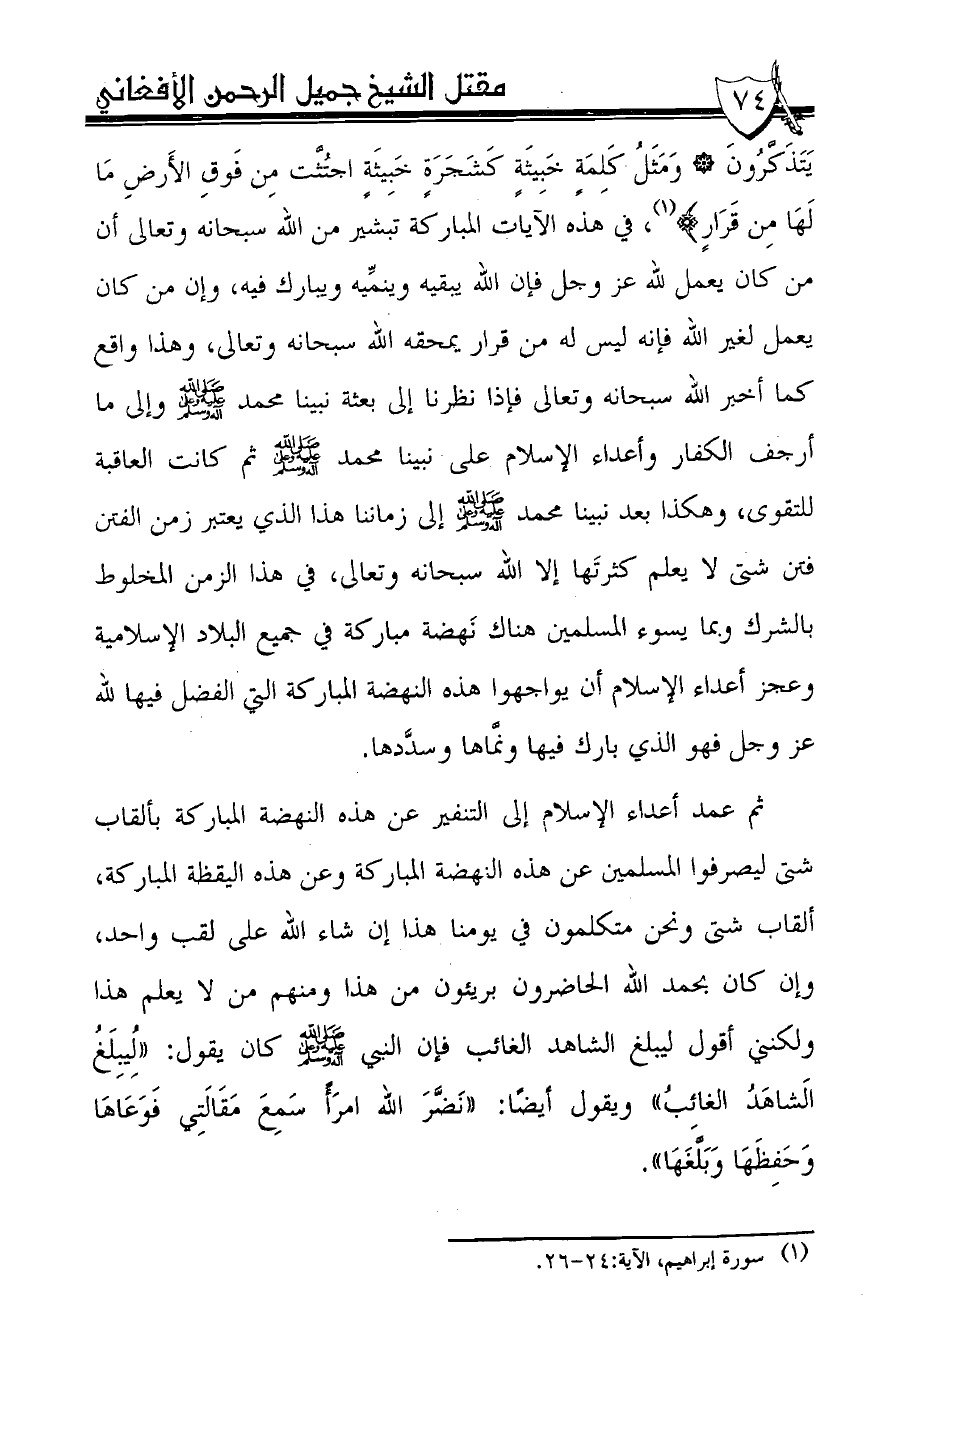 مقتل الشيخ جميل الرحمن الأفغاني
٧٤
يَتَذَكَّرُونَ ۞ وَمَثَلُ كَلِمَةٍ خَبِيثَةٍ كَشَجَرَةٍ خَبِيثَةٍ اجتُثَّت مِن فَوقِ الأَرضِ مَا
لَهَا مِن قَرَارٍ﴾(١)، في هذه الآيات المباركة تبشير من الله سبحانه وتعالى أن
من كان يعمل لله عز وجل فإن الله يبقيه وينمِّيه ويبارك فيه، وإن من كان
يعمل لغير الله فإنه ليس له من قرار يمحقه الله سبحانه وتعالى، وهذا واقع
كما أخبر الله سبحانه وتعالى فإذا نظرنا إلى بعثة نبينا محمد ﷺ وإلى ما
أرجف الكفار وأعداء الإسلام على نبينا محمد ﷺ ثم كانت العاقبة
للتقوى، وهكذا بعد نبينا محمد ﷺ إلى زماننا هذا الذي يعتبر زمن الفتن
فتن شتى لا يعلم كثرتَها إلا الله سبحانه وتعالى، في هذا الزمن المخلوط
بالشرك وبما يسوء المسلمين هناك نَهضة مباركة في جميع البلاد الإسلامية
وعجز أعداء الإسلام أن يواجهوا هذه النهضة المباركة التي الفضل فيها لله
عز وجل فهو الذي بارك فيها ونمَّاها وسدَّدها.
ثم عمد أعداء الإسلام إلى التنفير عن هذه النهضة المباركة بألقاب
شتى ليصرفوا المسلمين عن هذه النهضة المباركة وعن هذه اليقظة المباركة،
ألقاب شتى ونحن متكلمون في يومنا هذا إن شاء الله على لقب واحد،
وإن كان بحمد الله الحاضرون بريئون من هذا ومنهم من لا يعلم هذا
ولكنني أقول ليبلغ الشاهد الغائب فإن النبي ﷺ كان يقول: «لِيُبلِغُ
الَشاهَدُ الغائِبُ» ويقول أيضًا: «نَضَّرَ الله امرَأً سَمِعَ مَقَالَتِي فَوَعَاهَا
وَحَفِظَهَا وَبَلَّغَهَا».
(١) سورة إبراهيم، الآية:٢٤-٢٦.